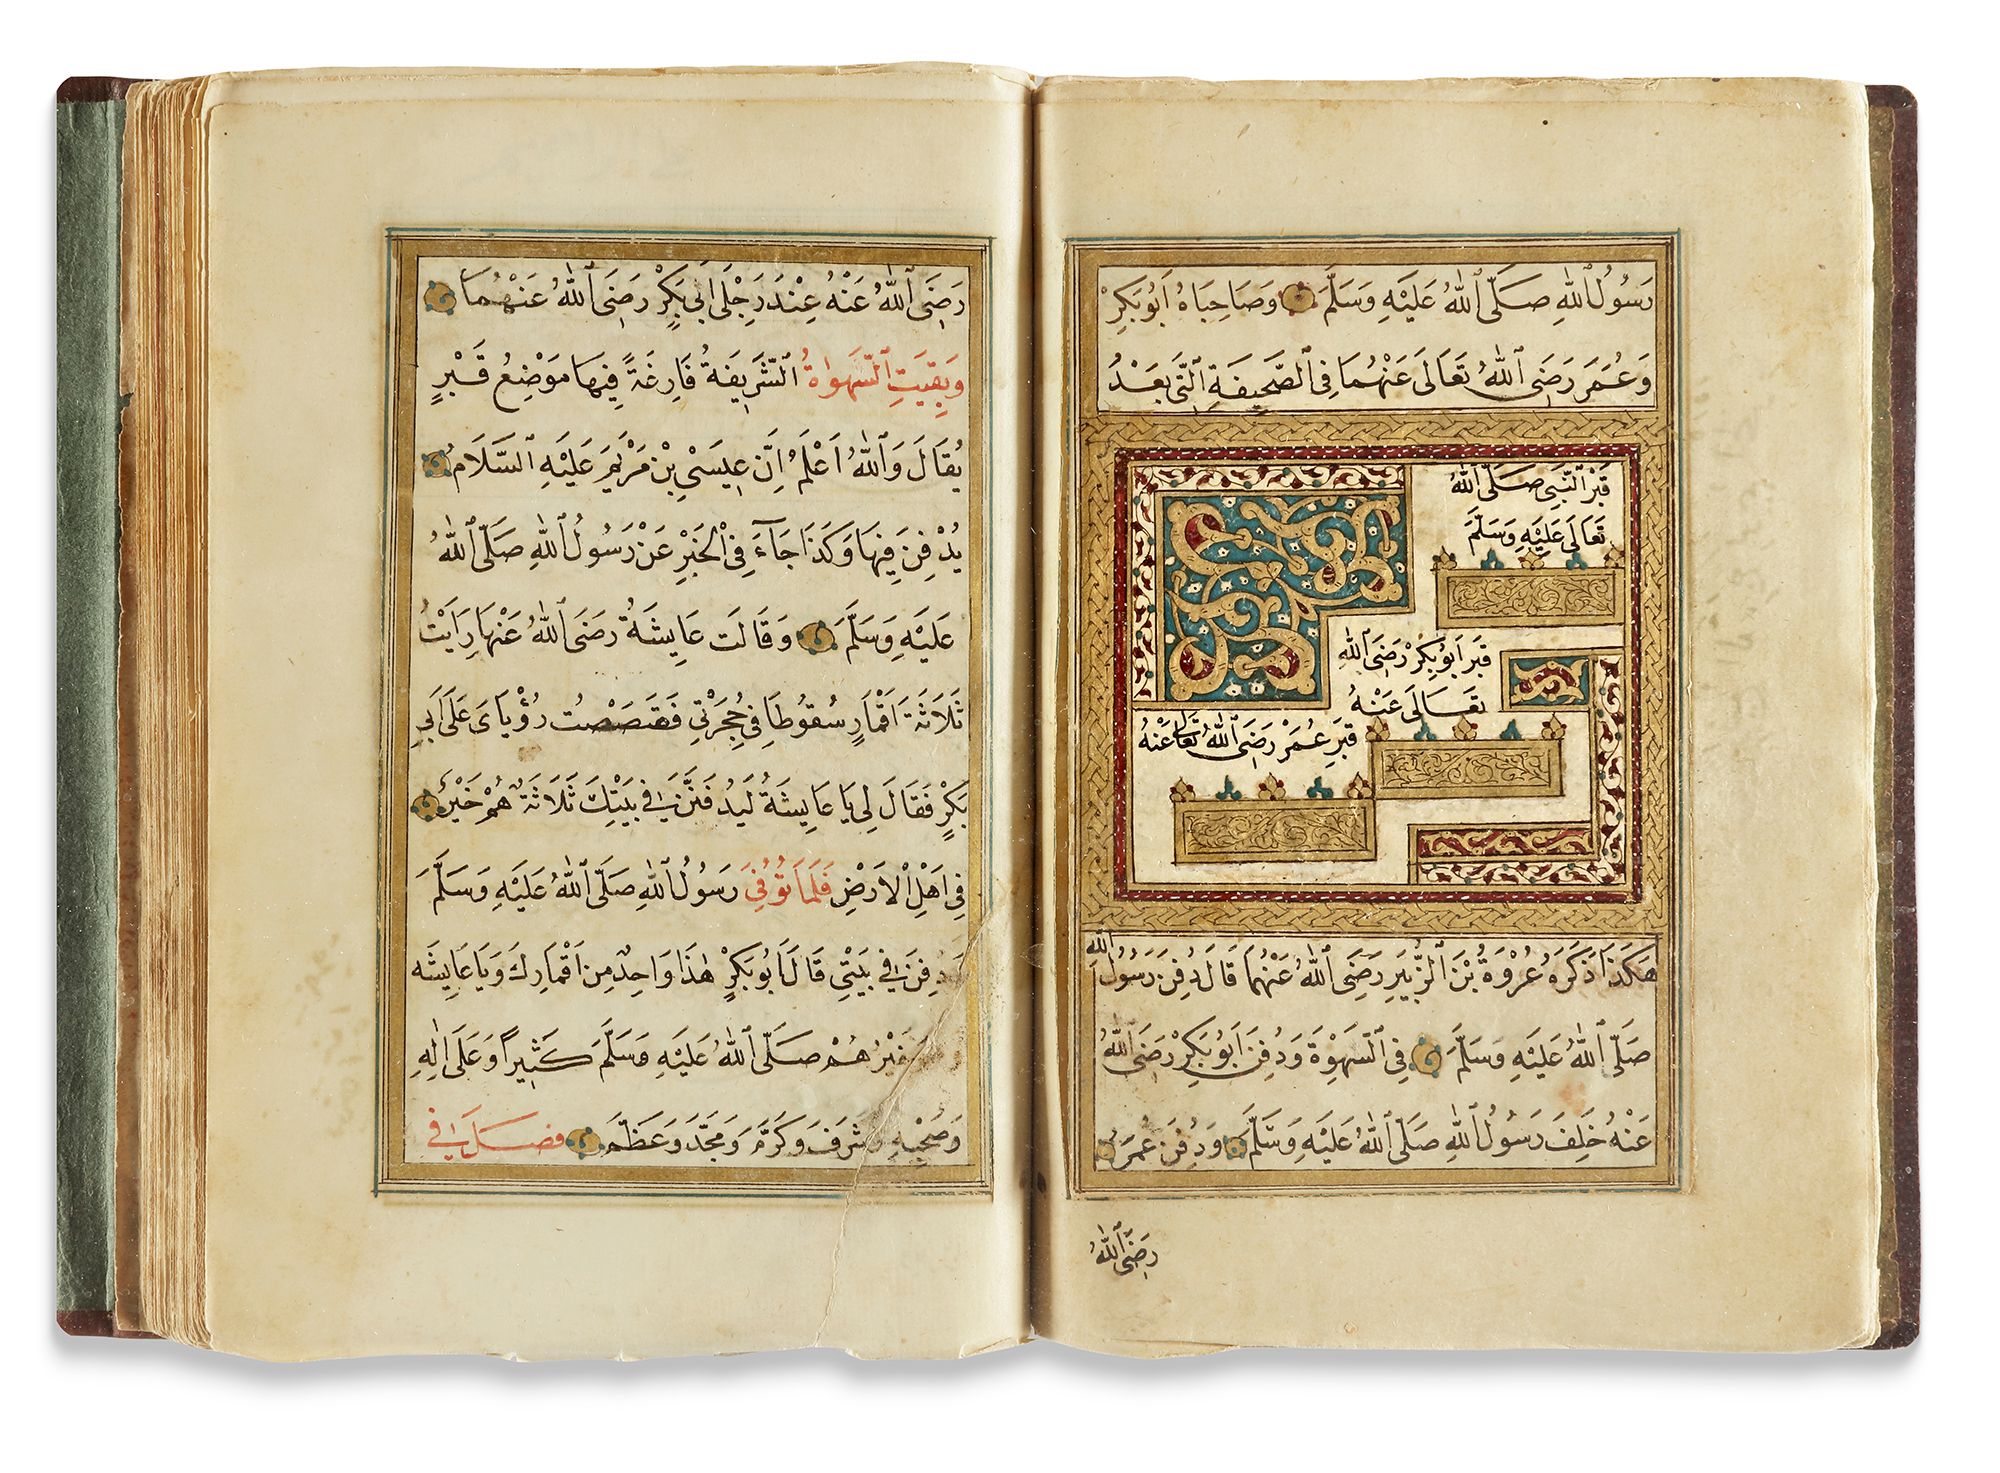 رَسُولُ اللّٰهِ صَلَّى اللّٰهُ عَلَيْهِ وَسَلَّمَ وَصَاحِبَاهُ اَبُو بَكِرْ
وَعُمَرَ رَضِىَ اللّٰهُ تَعَالَى عَنْهُمَا فِى الصَّحِيفَةِ الَّتِى بَعْدُ
قَبْرُ النَّبِىِّ صَلَّى اللّٰهُ
تَعَالَى عَلَيْهِ وَسَلَّمَ
قبر اَبُو بَكِرْ رَضِىَ اللّٰهُ
تَعَالَى عَنْهُ
قبر عُمَرْ رَضِىَ اللّٰهُ تَعَالَى عَنْهُ
هٰكَذَا ذَكَرَهُ عُرْوَةُ بْنُ الزُّبَيرِ رَضِىَ اللّٰهُ عَنْهُمَا قَالَ دُفِنَ رَسُولُ اللّٰه
صَلَّى اللّٰهُ عَلَيْهِ وَسَلَّمَ فِى السَّهْوَةِ وَدُفِنَ اَبُو بَكِرْ رَضِىَ اللّٰهُ
عَنْهُ خَلْفَ رَسُولُ اللّٰهِ صَلَّى اللّٰهُ عَلَيْهِ وَسَلَّمَ وَدُفِنَ عُمَرُ
رَضِىَ اللّٰهُ
رَضِىَ اللّٰهُ عَنْهُ عِنْدَ رَجْلَى اَبِى بَكِرْ رَضِىَ اللّٰهُ عَنْهُمَا
وَبَقِيَتِ السَّهوَاةُ الشَّرِيفَةُ فَارِغَةً فِيهَا مَوْضِعُ قَبْرٍ
يُقَالَ وَاللّٰهُ اَعْلَمُ اِنَّ عِيسَىٰ بْنَ مَرْيَمَ عَلَيْهِ السَّلَامُ
يُدْفِنَ فِيهَا وَكَذَا جَآءَ فِى الْخَبَرْ عَنْ رَسُولُ اللّٰهِ صَلَّى اللّٰهُ
عَلَيْهِ وَسَلَّمَ وَقَالَت عَايِشَةُ رَضَىَ اللّٰهُ عَنْهَا رَاَيْتُ
ثَلَاثَةَ اَقْمَارٍ سُقُوطًا فِى حُجْرَتِى فَقَصَصْتُ رُؤْيَاىَ عَلَى اَبِى
بَكِرٍ فَقَالَ لِى يَا عَايِشَةُ لَيُدْفَنَنَّ فِى بَيْتِكَ ثَلَاثَةٌ هُمْ خَيْرُ
فِى اَهْلِ الْاَرْضِ فَلَمَّا تُوُفِّىَ رَسُولُ اللّٰهِ صَلَّى اللّٰهُ عَلَيْهِ وَسَلَّمَ
وَدُفِنَ فِى بَيْتِى قَالَ اَبُو بَكِرْ هٰذَا وَاحِدٌ مِن اَقْمَارِكَ وَيَا عَايِشَه
خَيْرُهُمْ صَلَّى اللّٰهُ عَلَيْهِ وَسَلَّمَ كَثِيراً وَعَلَى اٰلِهِ
وَصَحْبِهِ وَشَرَفَ وَكَرَّمَ وَمَجَّدَ وَعَظَّمَ فصَل فِى